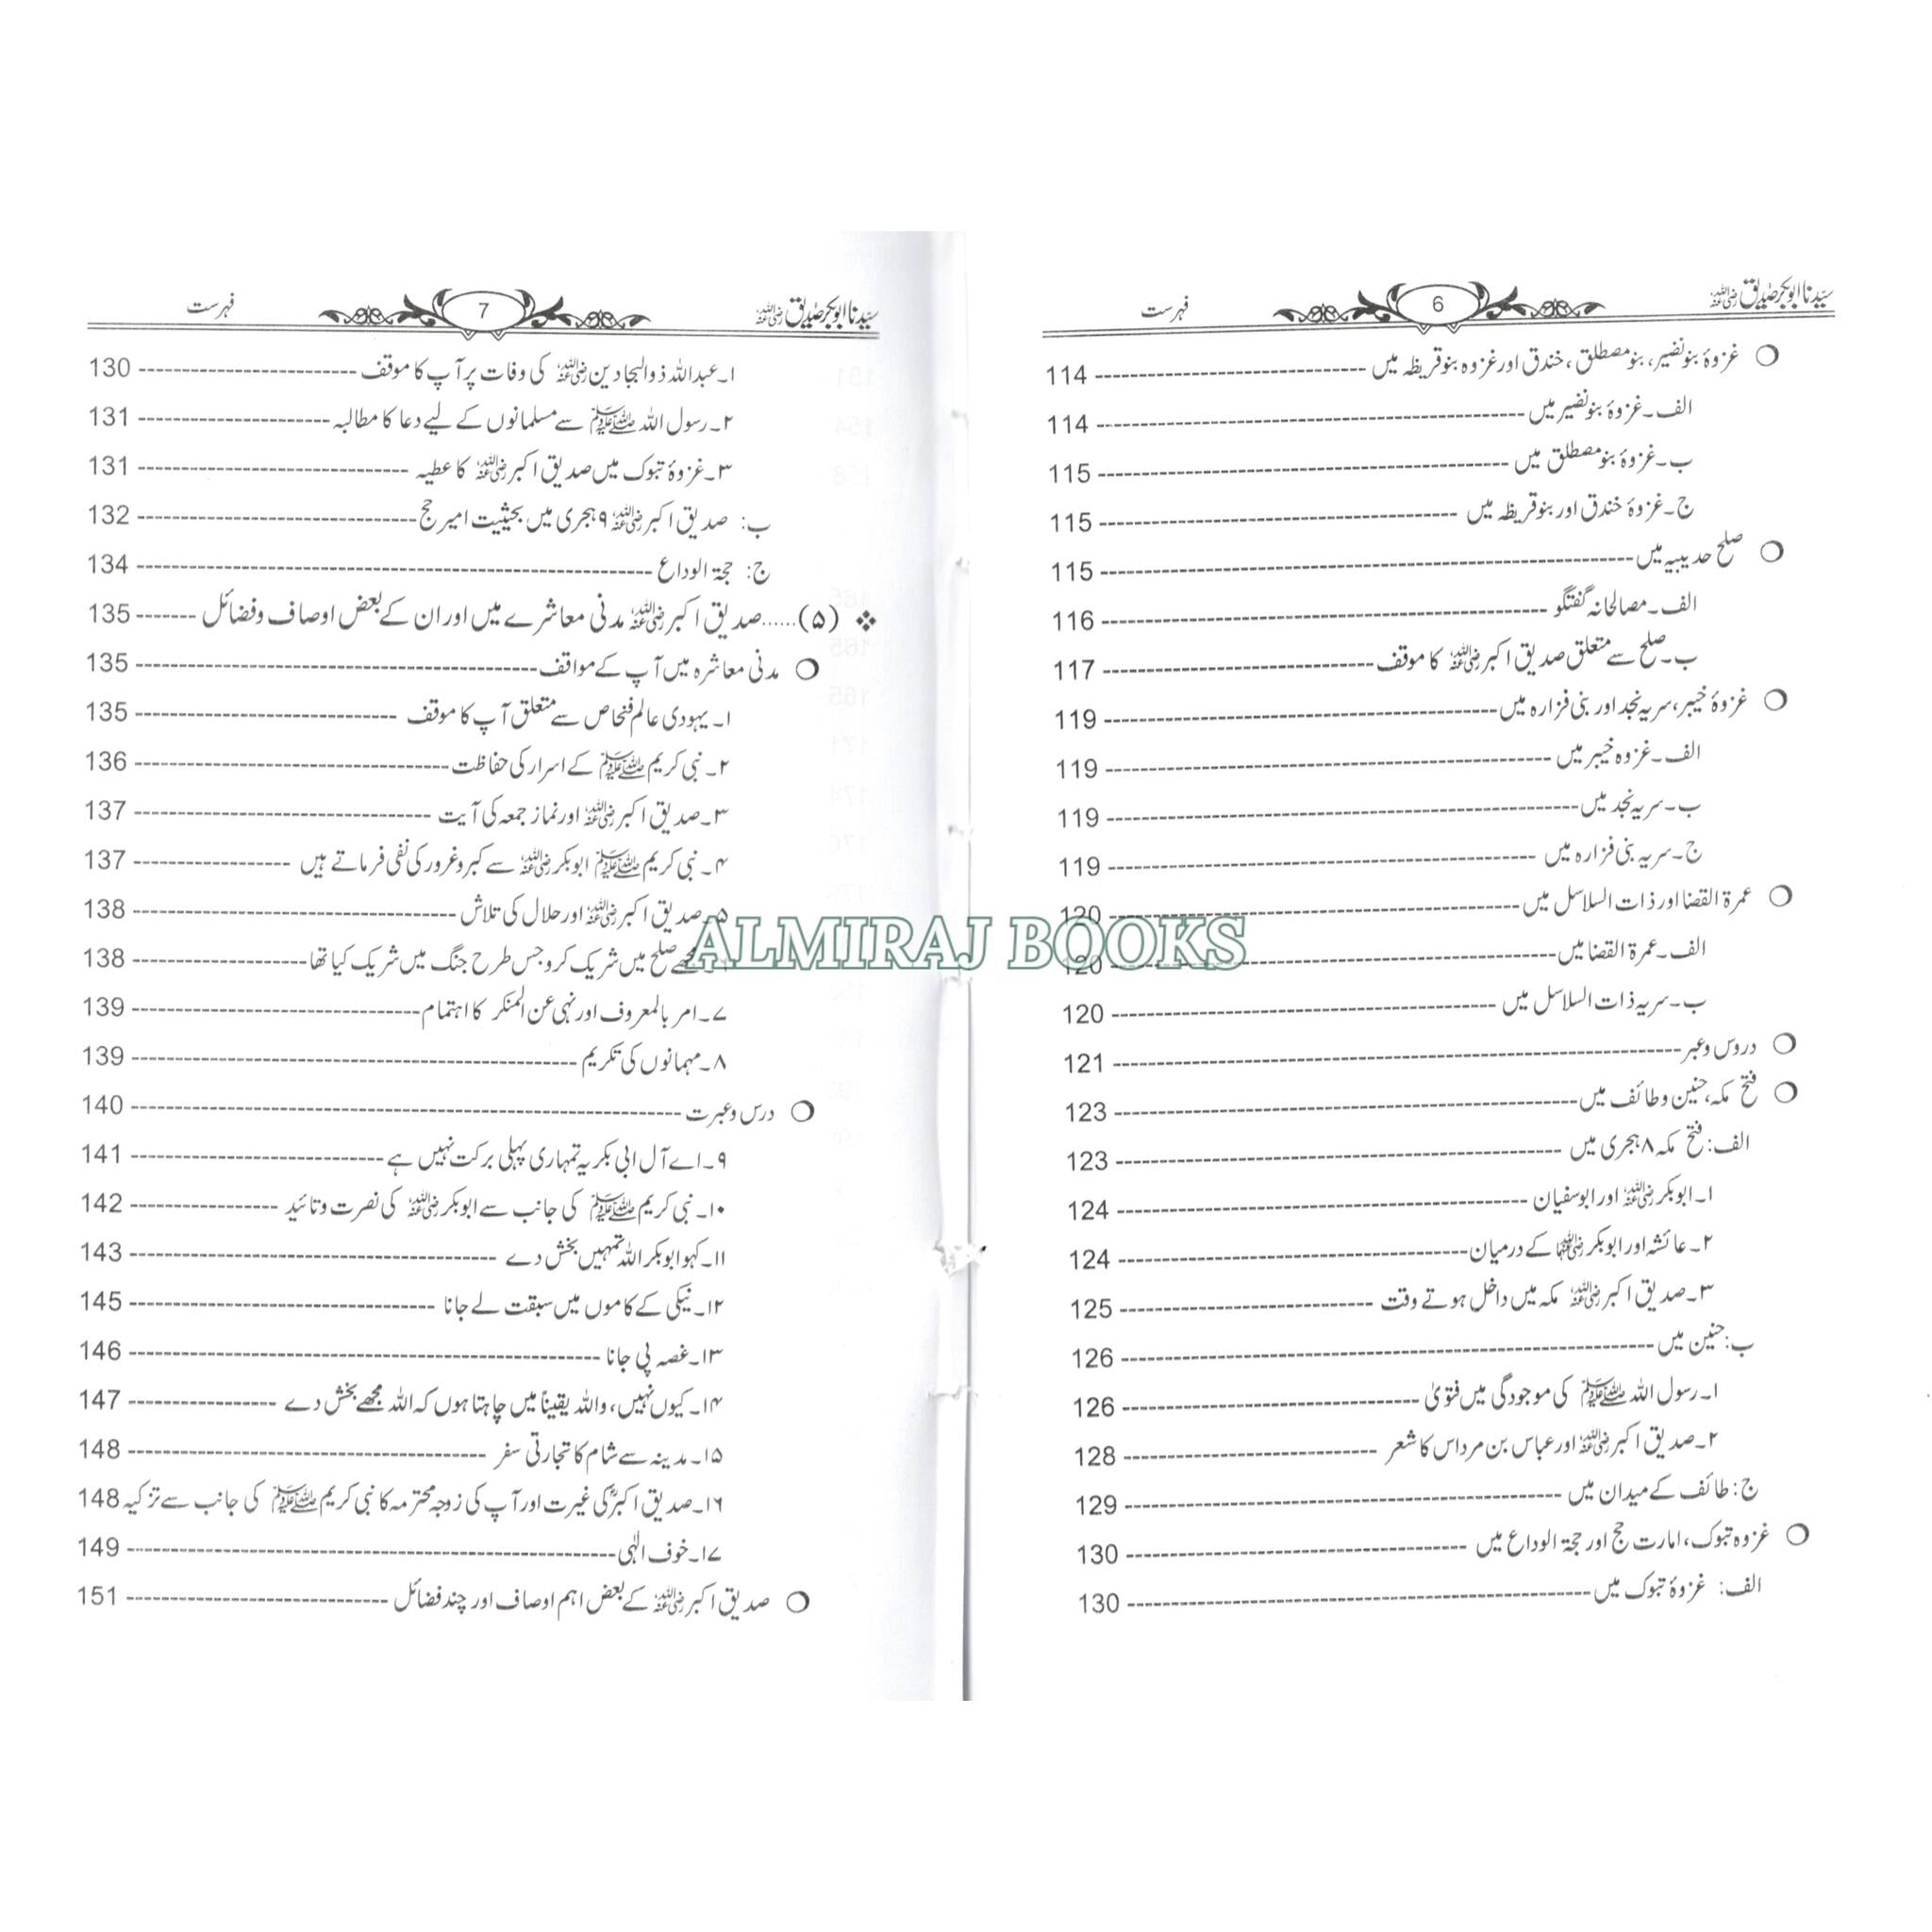 سیّدنا ابوبکر صدیق رضی اللہ عنہ 6 فہرست
غزوۂ بنو نضیر، بنو مصطلق، خندق اور غزوہ بنو قریظہ میں 114
الف۔ غزوۂ بنو نضیر میں 114
ب۔ غزوۂ بنو مصطلق میں 115
ج۔ غزوۂ خندق اور بنو قریظہ میں 115
صلح حدیبیہ میں 115
الف۔ مصالحانہ گفتگو 116
ب۔ صلح سے متعلق صدیق اکبر رضی اللہ عنہ کا موقف 117
غزوۂ خیبر، سریہ نجد اور بنی فزارہ میں 119
الف۔ غزوہ خیبر میں 119
ب۔ سریہ نجد میں 119
ج۔ سریہ بنی فزارہ میں 119
عمرۃ القضا اور ذات السلاسل میں 120
الف۔ عمرۃ القضا میں 120
ب۔ سریہ ذات السلاسل میں 120
دروس وعبر 121
فتح مکہ، حنین وطائف میں 123
الف: فتح مکہ ۸ ہجری میں 123
۱۔ ابوبکر رضی اللہ عنہ اور ابوسفیان 124
۲۔ عائشہ اور ابوبکر رضی اللہ عنہما کے درمیان 124
۳۔ صدیق اکبر رضی اللہ عنہ مکہ میں داخل ہوتے وقت 125
ب: حنین میں 126
۱۔ رسول اللہ ﷺ کی موجودگی میں فتویٰ 126
۲۔ صدیق اکبر رضی اللہ عنہ اور عباس بن مرداس کا شعر 128
ج: طائف کے میدان میں 129
غزوہ تبوک، امارت حج اور حجۃ الوداع میں 130
الف: غزوۂ تبوک میں 130
سیّدنا ابوبکر صدیق رضی اللہ عنہ 7 فہرست
۱۔ عبداللہ ذوالبجادین رضی اللہ عنہ کی وفات پر آپ کا موقف 130
۲۔ رسول اللہ ﷺ سے مسلمانوں کے لیے دعا کا مطالبہ 131
۳۔ غزوۂ تبوک میں صدیق اکبر رضی اللہ عنہ کا عطیہ 131
ب: صدیق اکبر رضی اللہ عنہ ۹ ہجری میں بحیثیت امیر حج 132
ج: حجۃ الوداع 134
(۵)...... صدیق اکبر رضی اللہ عنہ مدنی معاشرے میں اور ان کے بعض اوصاف وفضائل 135
مدنی معاشرہ میں آپ کے مواقف 135
۱۔ یہودی عالم فنحاص سے متعلق آپ کا موقف 135
۲۔ نبی کریم ﷺ کے اسرار کی حفاظت 136
۳۔ صدیق اکبر رضی اللہ عنہ اور نماز جمعہ کی آیت 137
۴۔ نبی کریم ﷺ ابوبکر رضی اللہ عنہ سے کبر وغرور کی نفی فرماتے ہیں 137
۵۔ صدیق اکبر رضی اللہ عنہ اور حلال کی تلاش 138
مجھے صلح میں شریک کرو جس طرح جنگ میں شریک کیا تھا 138
۷۔ امر بالمعروف اور نہی عن المنکر کا اہتمام 139
۸۔ مہمانوں کی تکریم 139
درس وعبرت 140
۹۔ اے آل ابی بکر یہ تمہاری پہلی برکت نہیں ہے 141
۱۰۔ نبی کریم ﷺ کی جانب سے ابوبکر رضی اللہ عنہ کی نصرت وتائید 142
۱۱۔ کہو ابوبکر اللہ تمہیں بخش دے 143
۱۲۔ نیکی کے کاموں میں سبقت لے جانا 145
۱۳۔ غصہ پی جانا 146
۱۴۔ کیوں نہیں، واللہ یقیناً میں چاہتا ہوں کہ اللہ مجھے بخش دے 147
۱۵۔ مدینہ سے شام کا تجارتی سفر 148
۱۶۔ صدیق اکبرؓ کی غیرت اور آپ کی زوجہ محترمہ کا نبی کریم ﷺ کی جانب سے تزکیہ 148
۱۷۔ خوف الٰہی 149
صدیق اکبر رضی اللہ عنہ کے بعض اہم اوصاف اور چند فضائل 151
ALMIRAJ BOOKS